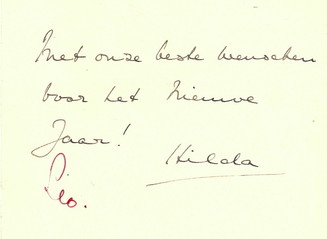 Met onze beste wenschen
voor het Nieuwe
Jaar!
Hilda
Leo.